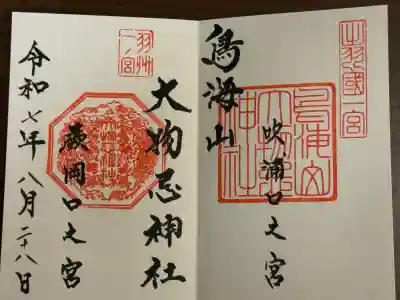 出羽國一宮
鳥海山
吹浦口之宮
羽州
一ノ宮
大物忌神社
蕨岡口之宮
令和七年八月二十八日